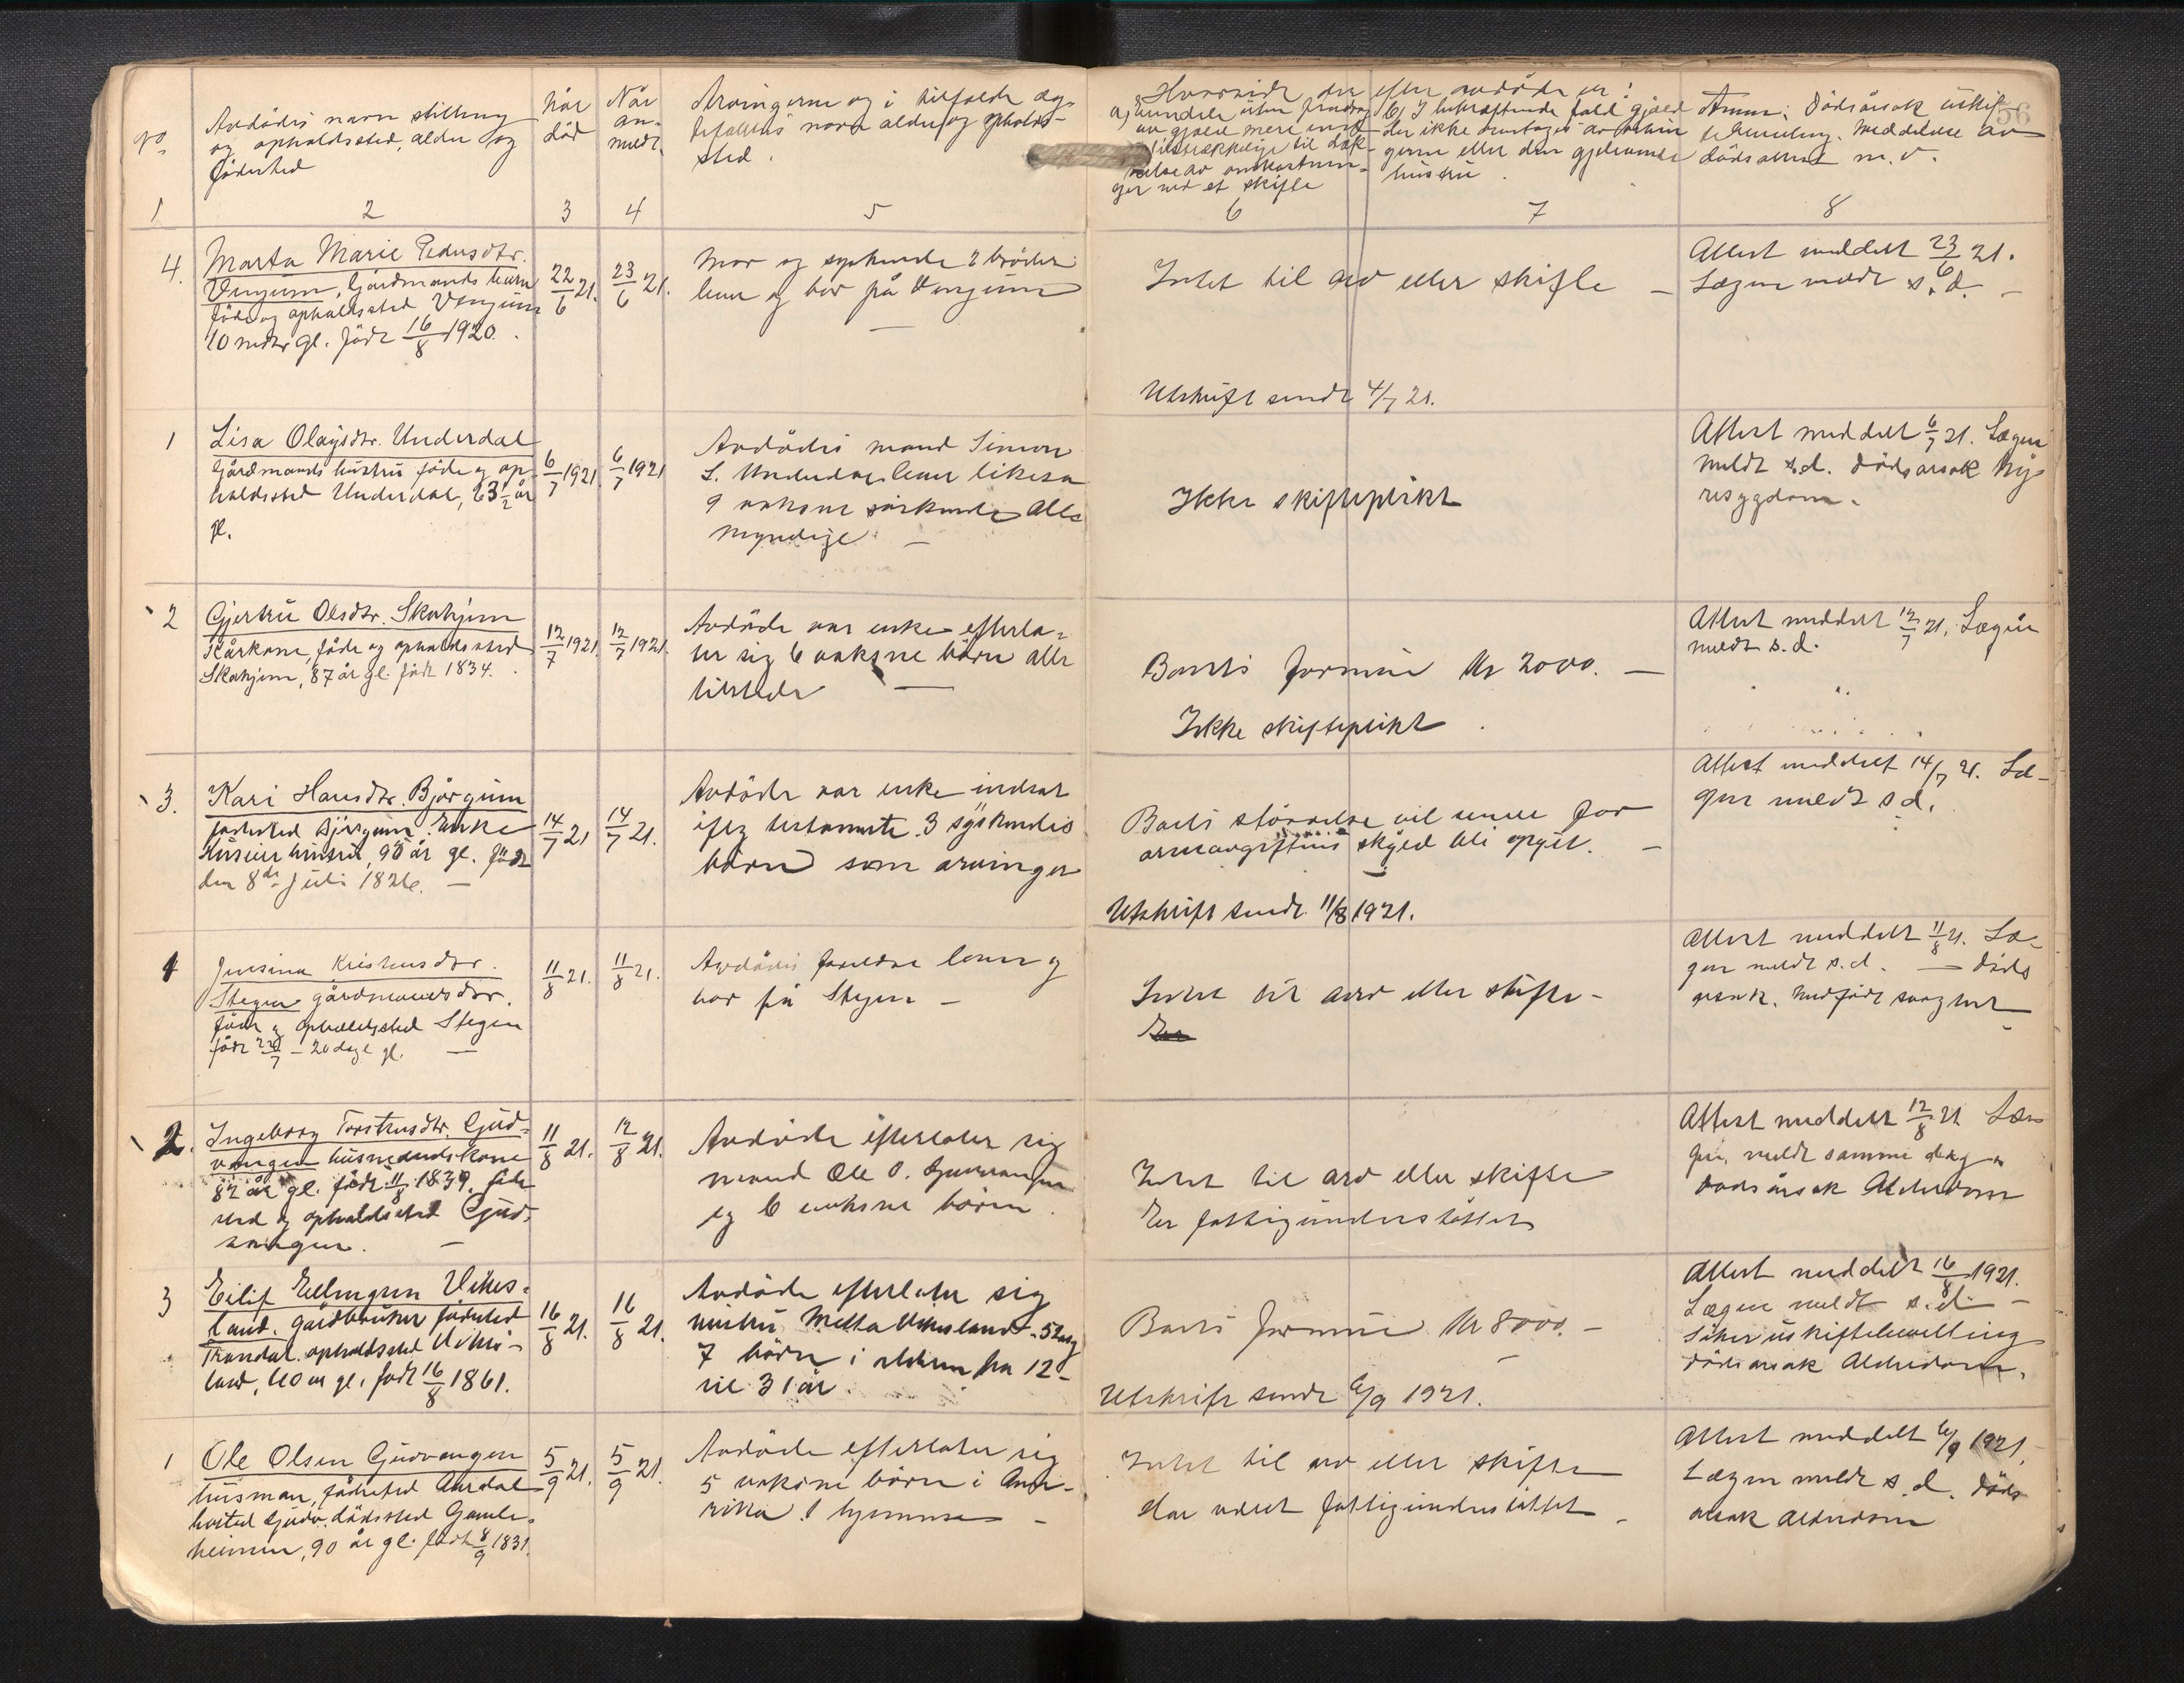 No
Avdødes navn stilling
og opholdssted, alder og
fødested
Når
død
Når
an-
meldt.
Arvingerne og i tilfælde
navn alder og opholds-
sted.
Hvorvidt der efter avdøde er:
a) eiendele uten fradrag
av gjæld mere end
tilstrækkelige til dæk-
kelse av omkostnin-
ger ved et skifte
b) I bekræftende fald gjæld
der ikke overtages av arvin
gerne eller den gjenlevende
hustru.
Anm: Dødsårsak uskif
Meddelelse av
dødsattest m. v.
56
1
2
3
4
5
6
7
8
4.
Marta Marie Pedersdtr.
Vengum, Gårdmands barn
føde og opholdssted Vengum
10 mdr gl. født 16/8 1920.
22/6 21.
23/6 21.
Mor og søskende 2 brødre
lever og bor på Vengum
Intet til arv eller skifte –
Attest meddelt 23/6 21.
Lægen meldt s. d. –
Utskrift sendt 4/7 21.
1
Lisa Olaysdtr. Underdal
Gårdmands hustru føde og op-
holdssted Underdal, 63 1/2 år
gl.
6/7 1921
6/7 1921
Avdødes mand Simon
S. Underdal lever likeså
9 voksne alle
myndige –
Ikke skiftepligt
Attest meddelt 6/7 21. Lægen
meldt s.d. Dødsårsak Ny-
resygdom.
2
Gjertru Olsdtr. Skahjem
Kårkone, føde og opholdssted
Skahjem, 87 år gl. født 1834.
12/7 1921
12/7 1921.
Avdøde var enke efterla-
ter sig 6 voksne børn alle
tilstede –
Boets formue Kr 2000. –
Ikke skiftepligt.
Attest meddelt 12/7 21. Lægen
meldt s.d.
3.
Kari Hansdtr. Bjørgum
fødested Bjørgum. Enke
hustru, 95 år gl. født
den 8de Juli 1826. –
14/7 21
14/7 21.
Avdøde var enke indsat
iflg testamente 3 søskendes
børn som arvinger
Boets størrelse vil senere for
arveavgiftens skyld bli opgit. –
Attest meddelt 14/7 21. Læ-
gen meldt s d.
Utskrift sendt 11/8 1921.
1
Jensina Kristensdtr.
Stegen gårdmandsdtr.
føde og opholdssted Stegen
født 22/7 – 20 dage gl. –
11/8 21.
11/8 21.
Avdødes forældre lever og
bor på Stegen –
Intet til arv eller skifte –
Attest meddelt 11/8 21. Læ-
gen meldt s.d. – Døds
årsak. Medfødt svaghet
2.
Ingeborg Torstensdtr. Gud-
vangen husmandskone
82 år gl. født 11/8 1839. føde
sted og opholdssted Gud-
vangen. –
11/8 21.
12/8 21.
Avdøde efterlater sig
mand Ole O. Gudvangen
og 6 voksne børn.
Intet til arv eller skifte
Er fattigunderstøttet
Attest meddelt 12/8 21 Læ-
gen meldt samme dag
Dødsårsak Alderdom
3
Eilif Ellingsen Vikes-
land. gårdbruker fødested
Trondal. opholdssted Vikes-
land, 60 år gl. født 16/8 1861.
16/8 21.
16/8 21.
Avdøde efterlater sig
hustru Metta Vikesland og
7 børn i alderen fra 12-
til 31 år.
Boets formue Kr 8000. –
Attest meddelt 16/8 1921.
Lægen meldt s.d –
Søker uskiftebevilling
dødsårsak Alderdom.
Utskrift sendt 6/9 1921.
1
Ole Olsen Gudvangen
husman, fødested Aurdal
bosted Gudv. dødssted Gamle-
heimen, 90 år gl. født 8/9 1831.
5/9 21.
5/9 21.
Avdøde efterlater sig
5 voksne børn i Ame-
rika 1 hjemme –
Intet til arv eller skifte
Har været fattigunderstøttet –
Attest meddelt 6/9 1921.
Lægen meldt s. d. Døds
årsak Alderdom